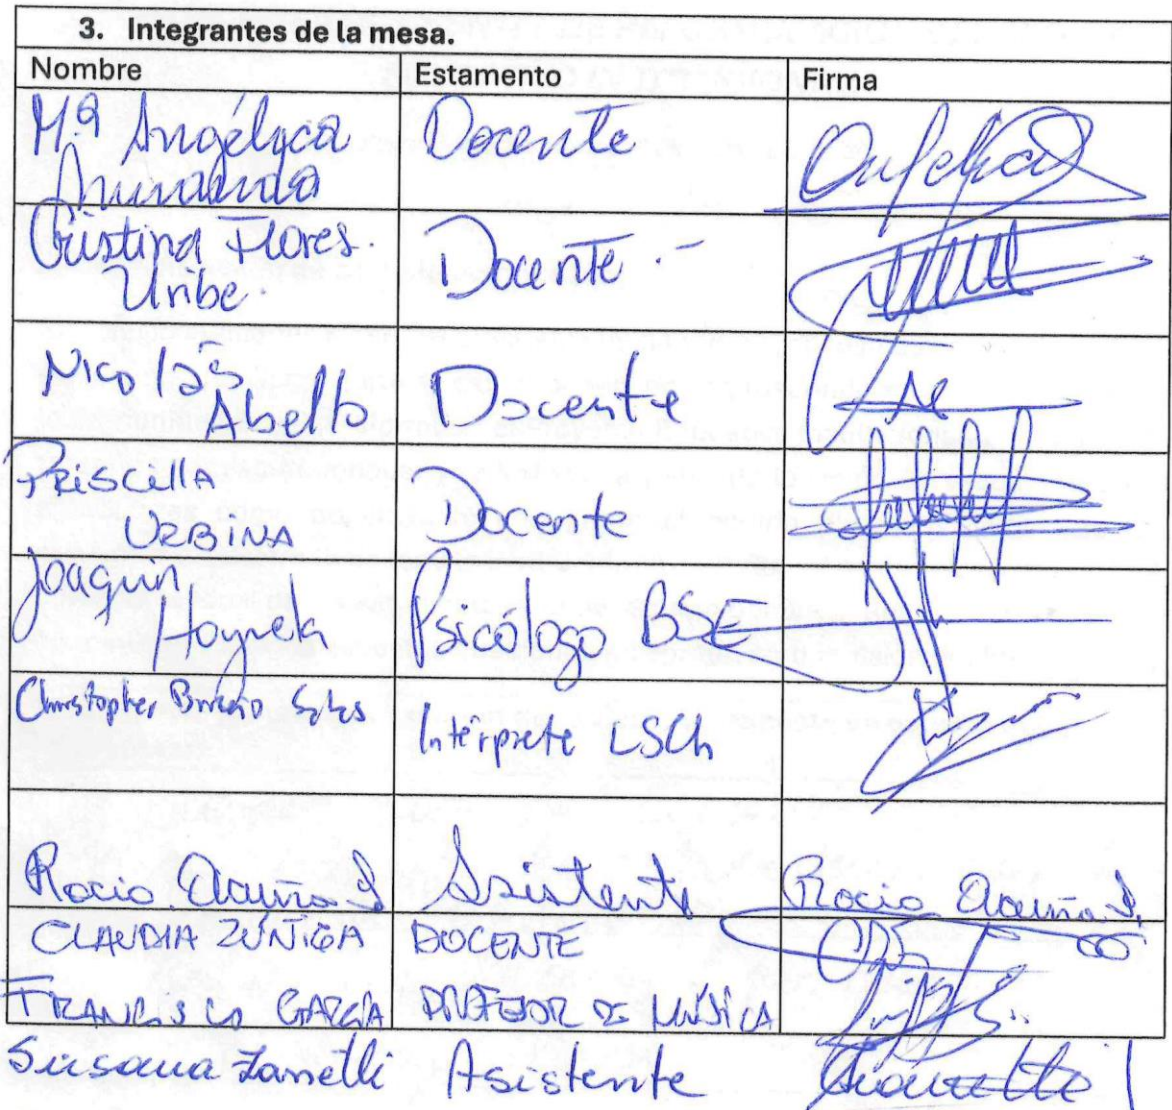 3. Integrantes de la mesa.
Nombre Estamento Firma
Mª Angélica Docente
Cristina Flores. Docente.-
Uribe.
Nicolás
Abello Docente
PRISCILLA Docente
URBINA
Joaquin Psicólogo BSE
Christopher Soles
Intérprete LSCh
Rocio Acuña S Asistente Rocio Acuña S.
CLAUDIA ZÚÑIGA DOCENTE
FRANCISCO GARCÍA PROFESOR DE MÚSICA
Susana Zanelli Asistente